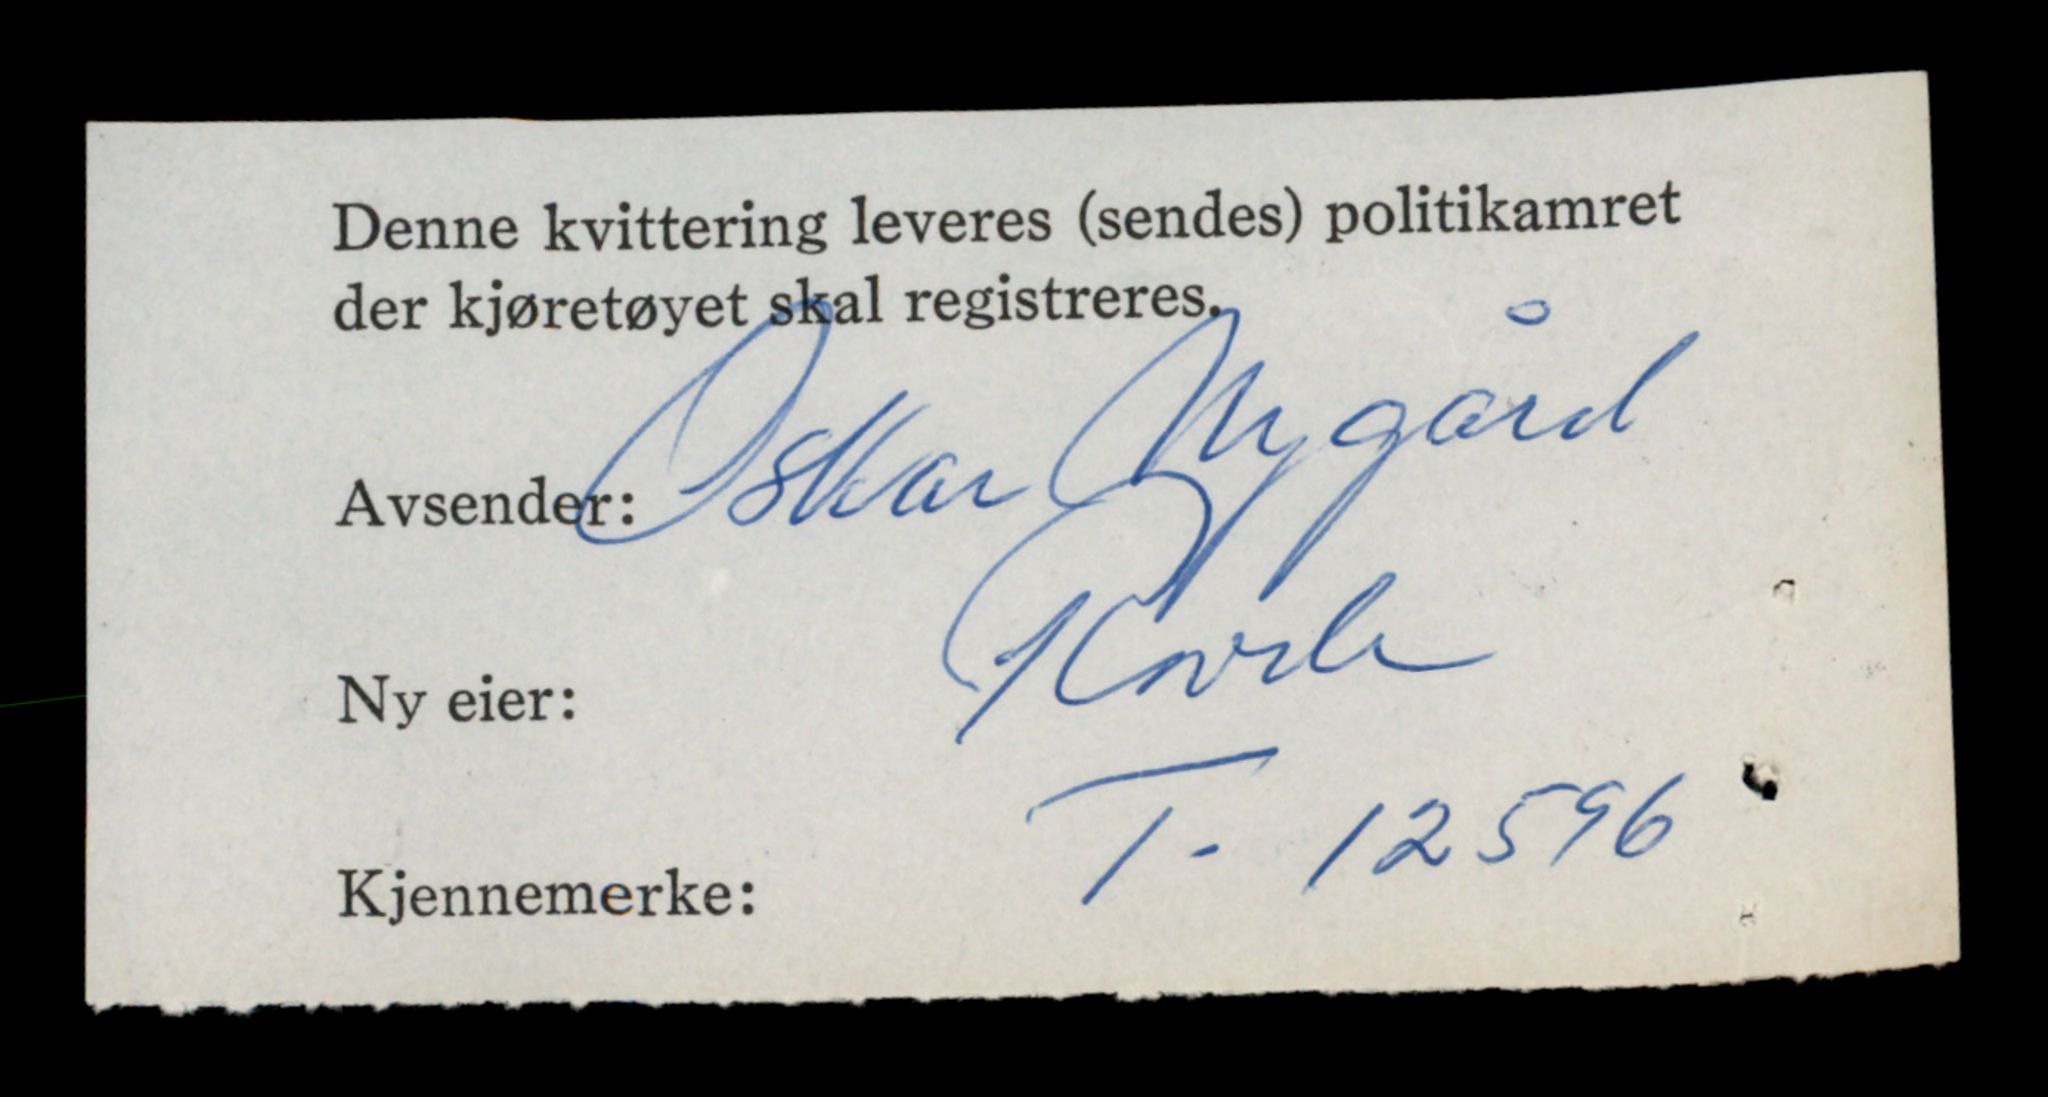 Denne kvittering leveres (sendes) politikamret
der kjøretøyet skal registreres.
Avsender: Oskar Nygård
Ny eier:
T- 12596
Kjennemerke: